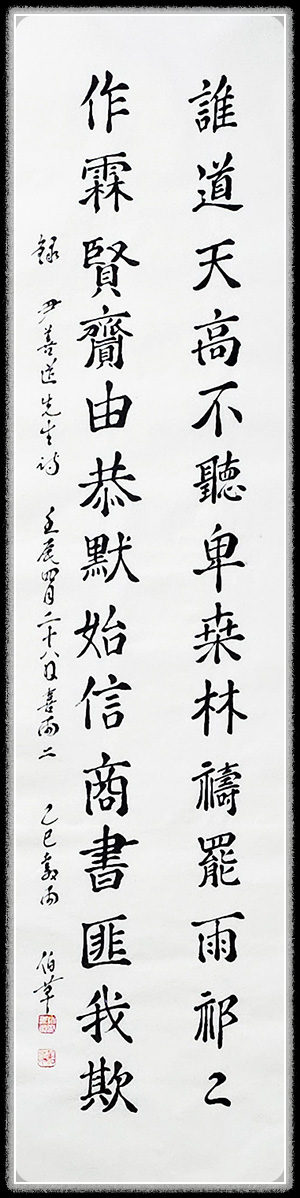 誰道天高不聽卑桒林禱罷雨祁〻
作霖賢齎由恭默始信商書匪我欺
錄 尹善道先生詩 壬辰四月二十八日喜雨二 乙巳穀雨 伯華